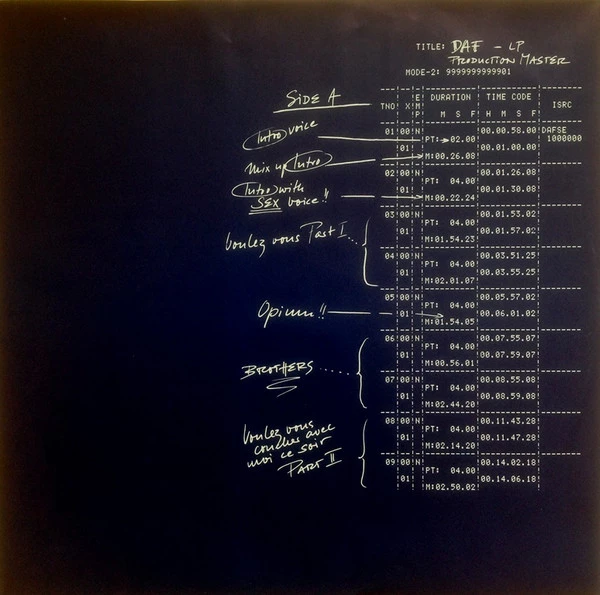 TITLE: DAF - LP
PRODUCTION MASTER
MODE-2: 9999999999901
SIDE A
TNO X E M P DURATION M S F TIME CODE H M S F ISRC
Intro voice
01 00 N PT: 02.00 00.00.58.00 DAFSE
01 M:00.26.08 00.01.00.00 1000000
Mix up Intro
02 00 N PT: 04.00 00.01.26.08
01 M:00.22.24 00.01.30.08
Intro with
SEX voice!!
03 00 N PT: 04.00 00.01.53.02
01 M:01.54.23 00.01.57.02
Voulez vous Part I...
04 00 N PT: 04.00 00.03.51.25
01 M:02.01.07 00.03.55.25
05 00 N PT: 04.00 00.05.57.02
01 M:01.54.05 00.06.01.02
Opium!!
06 00 N PT: 04.00 00.07.55.07
01 M:00.56.01 00.07.59.07
BROTHERS......
07 00 N PT: 04.00 00.08.55.08
01 M:02.44.20 00.08.59.08
08 00 N PT: 04.00 00.11.43.28
01 M:02.14.20 00.11.47.28
Voulez vous
coucher avec
moi ce soir
PART II
09 00 N PT: 04.00 00.14.02.18
01 M:02.50.02 00.14.06.18